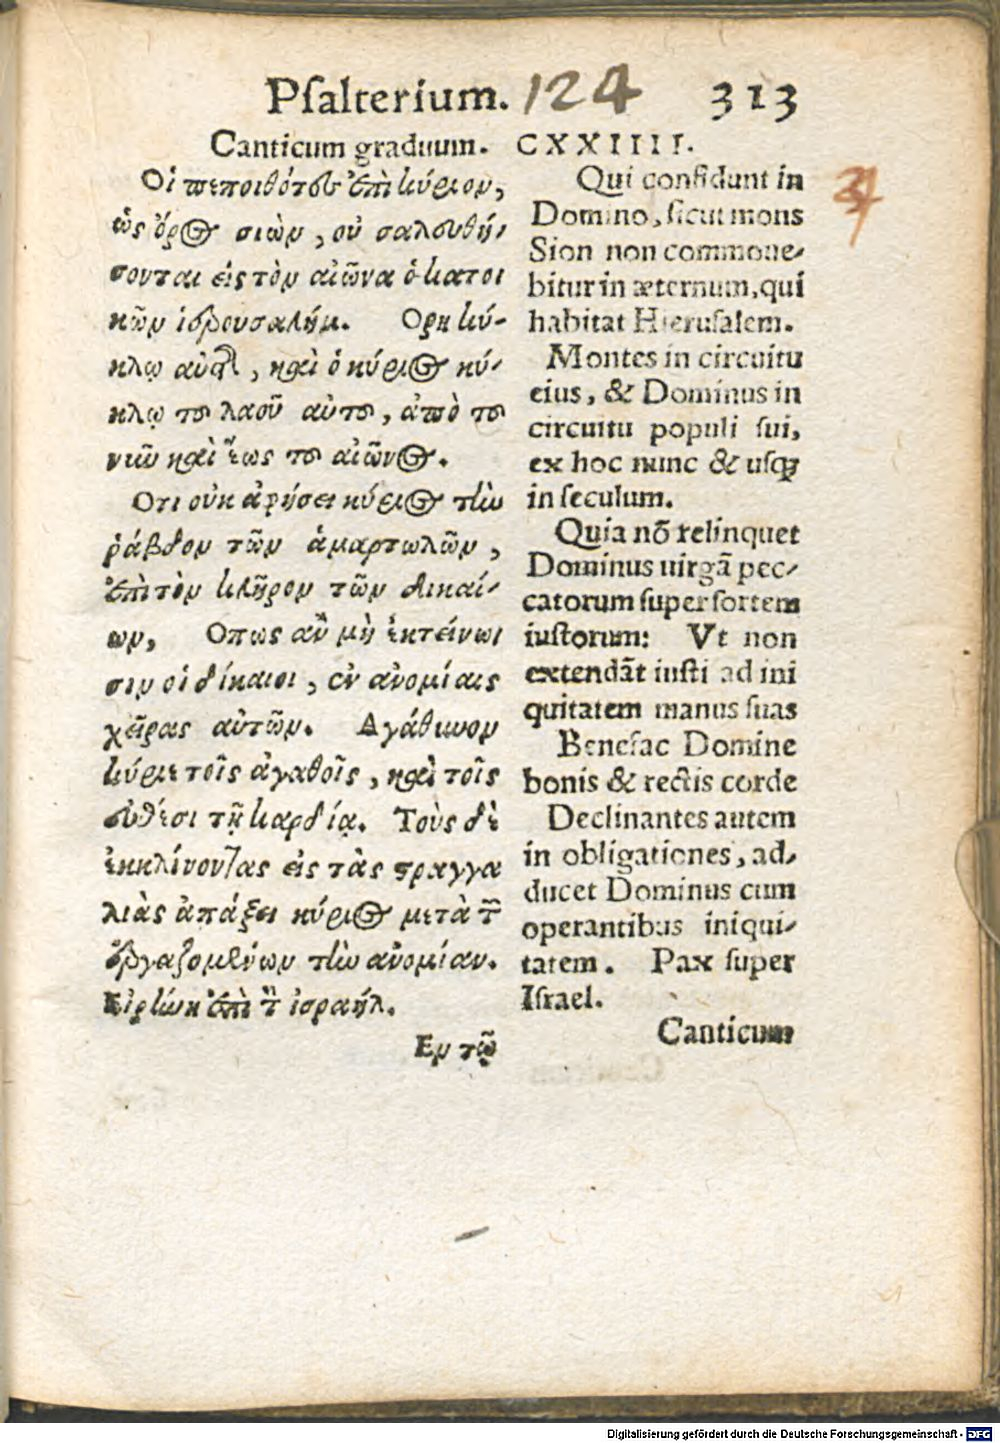 Pſalterium. 124 313
Canticum graduum. CXXIIII.
Οἱ πεποιθότες ἐπὶ κύριον,
ὡς ὄρος σιὼν, οὐ σαλευθή-
σονται εἰς τὸν αἰῶνα ὁ κατοι
κῶν ἱερουσαλήμ. Ορη κύ-
κλῳ αὐτῆς, καὶ ὁ κύριος κύ-
κλῳ τοῦ λαοῦ αὐτοῦ, ἀπὸ τοῦ
νιῦ καὶ ἕως τοῦ αἰῶνος.
Οτι οὐκ ἀφήσει κύριος τὴν
ῥάβδον τῶν ἁμαρτωλῶν,
ἐπὶ τὸν κλῆρον τῶν δικαί-
ων, Οπως ἂν μὴ ἐκτείνωι
σιν οἱ δίκαιοι, ἐν ἀνομίαις
χεῖρας αὐτῶν. Αγάθυνον
κύριε τοῖς ἀγαθοῖς, καὶ τοῖς
εὐθέσι τῇ καρδίᾳ. Τοὺς δὲ
ἐκκλίνοντας εἰς τὰς στραγγα
λιὰς ἀπάξει κύριος μετὰ τῶν
ἐργαζομένων τὴν ἀνομίαν.
Εἰρήνη ἐπὶ τὸν ἰσραήλ.
Εν τῷ
Qui confidunt in
Domino, ſicut mons
Sion non commoue-
bitur in æternum, qui
habitat Hieruſalem.
Montes in circuitu
eius, & Dominus in
circuitu populi ſui,
ex hoc nunc & uſq;
in ſeculum.
Quia nō relinquet
Dominus uirgā pec-
catorum ſuper ſortem
iuſtorum: Vt non
extendāt iuſti ad ini
quitatem manus ſuas
Benefac Domine
bonis & rectis corde
Declinantes autem
in obligationes, ad-
ducet Dominus cum
operantibus iniqui-
tatem. Pax ſuper
Iſrael.
Canticum
Digitalisierung gefördert durch die Deutsche Forschungsgemeinschaft - DFG